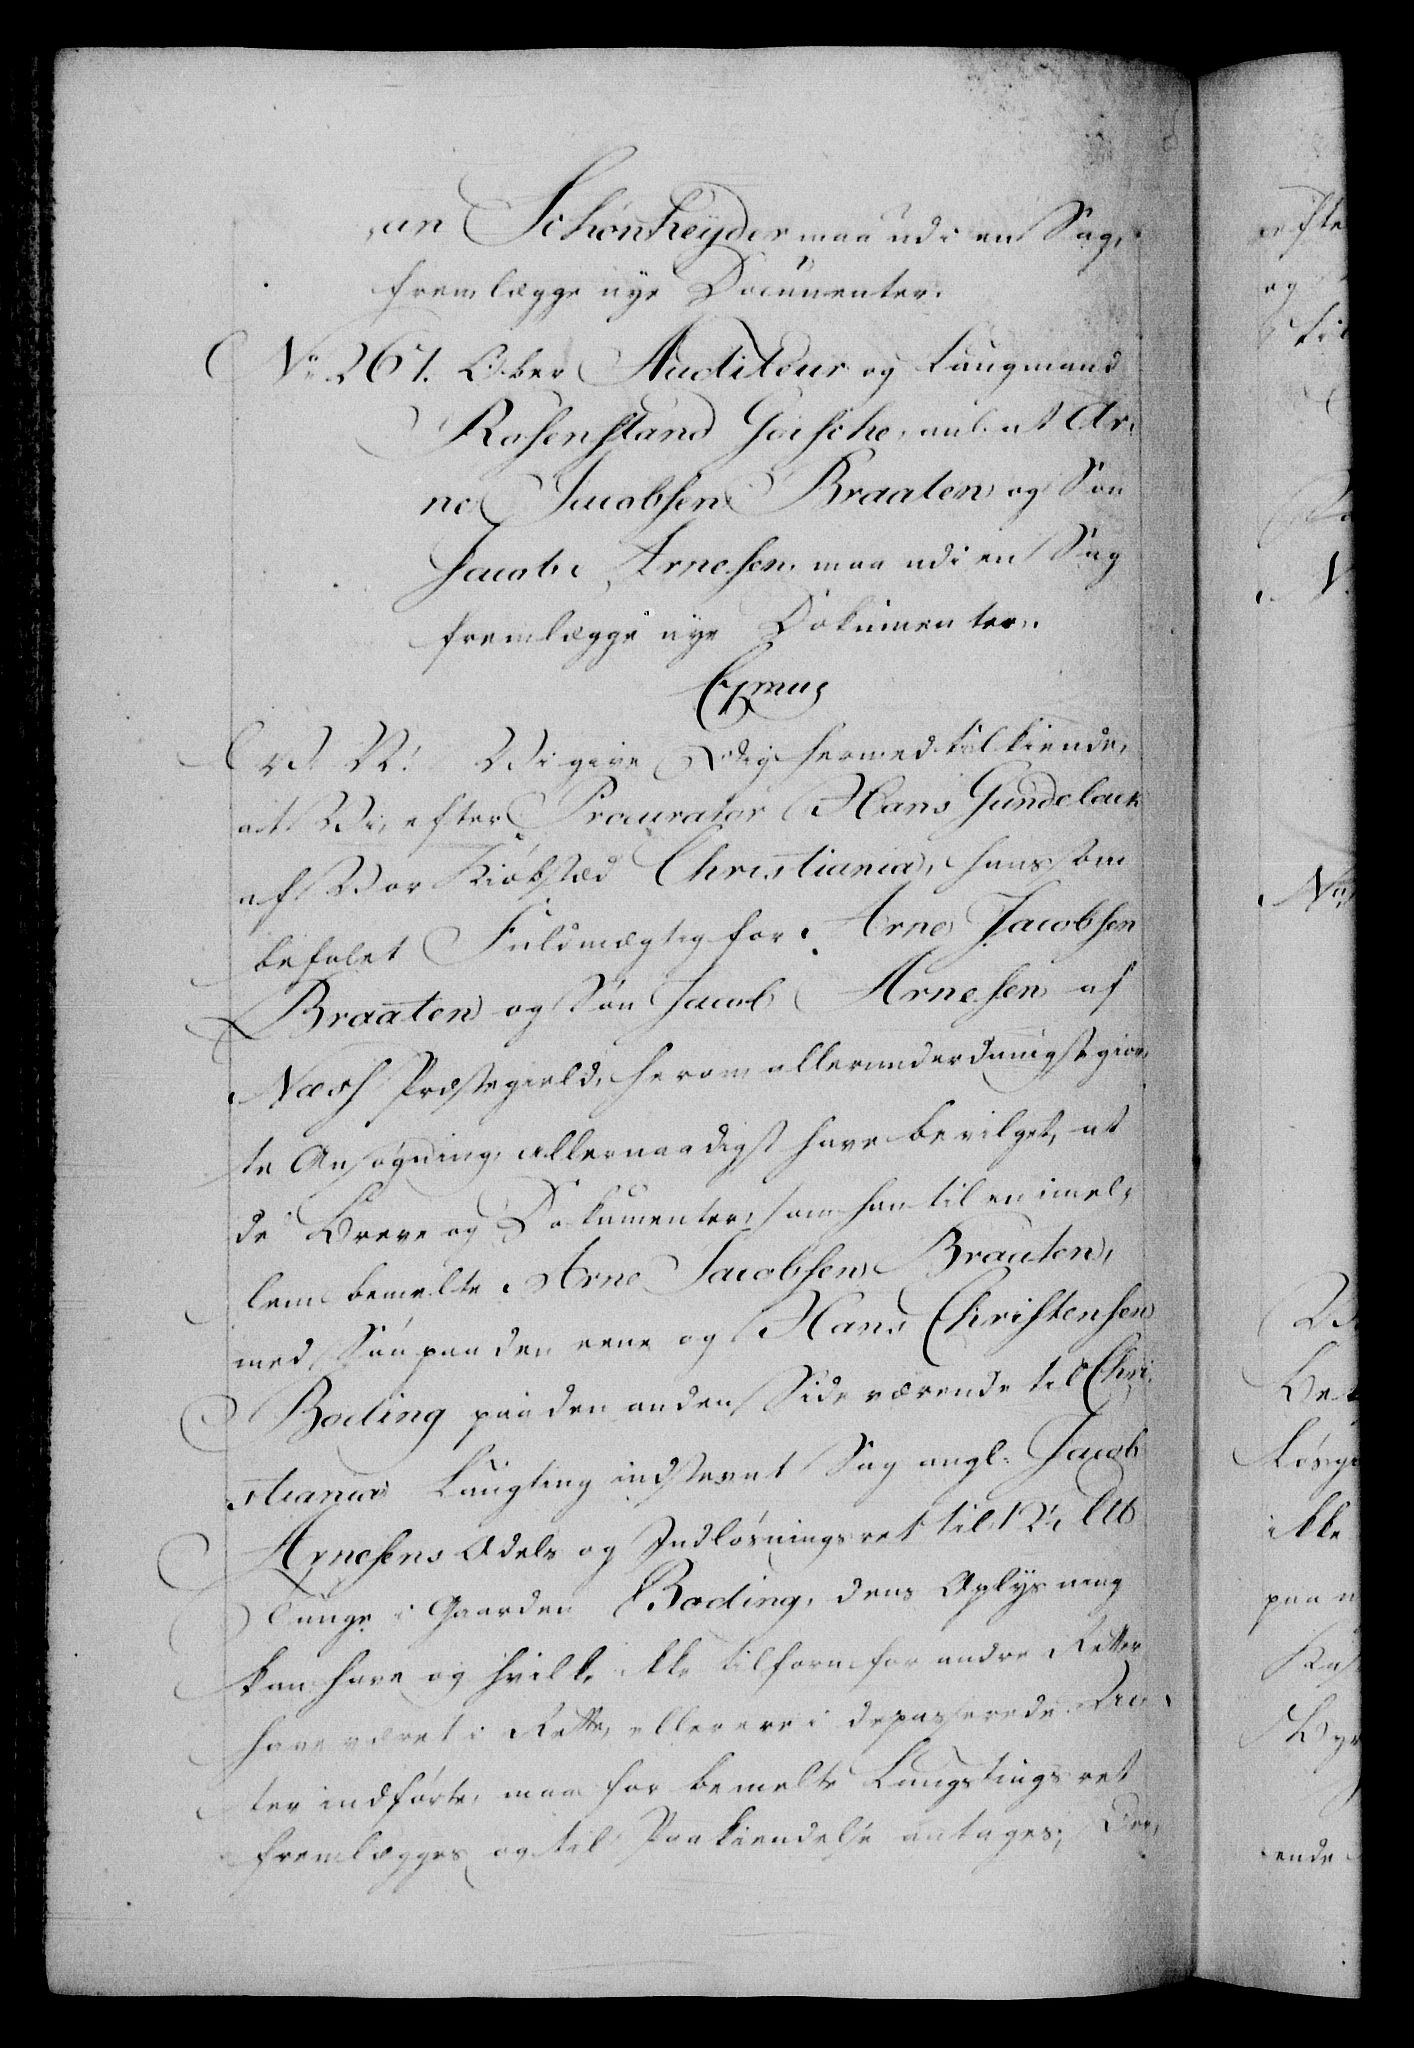 an Schönheyder maa udi en Sag
fremlægge nye Documenter.
No 267. Ober Auditeur og Laugmand
Rosenstand Goische, anl. at Ar-
ne Jacobsen Braaten og Søn
Jacob Arnesen maa udi en Sag
fremlægge nye Dokumenter.
C7mus
V. Vi give Dig hermed tilkiende,
at Vi, efter Procurator Hans Gundelach
af Vor Kiøbstæd Christiania, hans som
befalet Fuldmægtig for Arne Jacobsen
Braaten og Søn Jacob Arnesen af
Næss Præstegield, herom allerunderdanigst gior-
te Ansøgning, allernaadigst have bevilget, at
de Breve og Dokumenter, som han til en imel-
lem bemelte Arne Jacobsen Braaten,
med Søn paa den eene og Hans Christensen
Boding paa den anden Side værende til Chri-
stiania Laugting indstevnt Sag angl. Jacob
Arnesens Odels og Indløsningsret til 12½
Tunge i Gaarden Boding, dens Oplysning
kan have og hvilk. ikke tilforn for andre Retter
have været i Rette, eller ere i de passerede Ac-
ter indførte, maa for bemelte Laugtingsret
fremlægges og til Paakiendelse antages; Der-